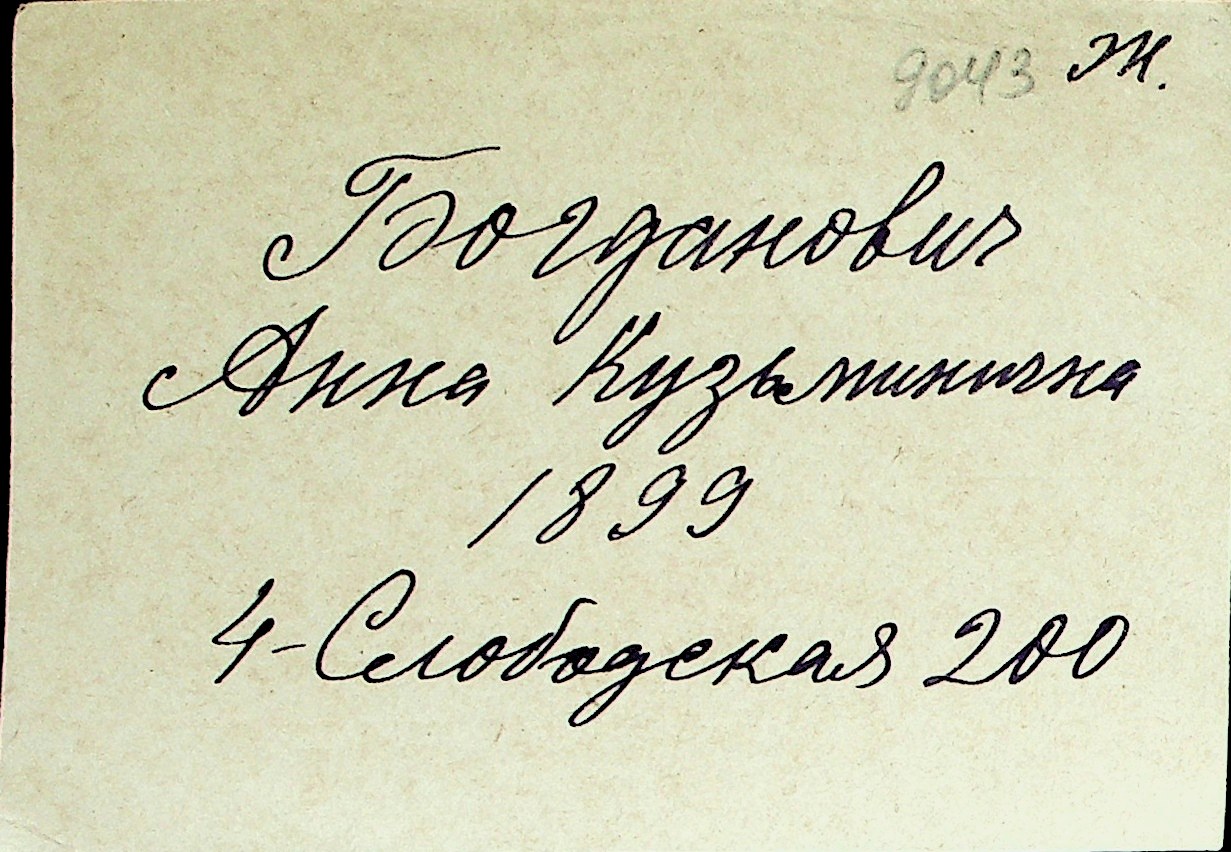 9043 Ж.
Богданович
Анна Кузьминична
1899
4-Слободская 200